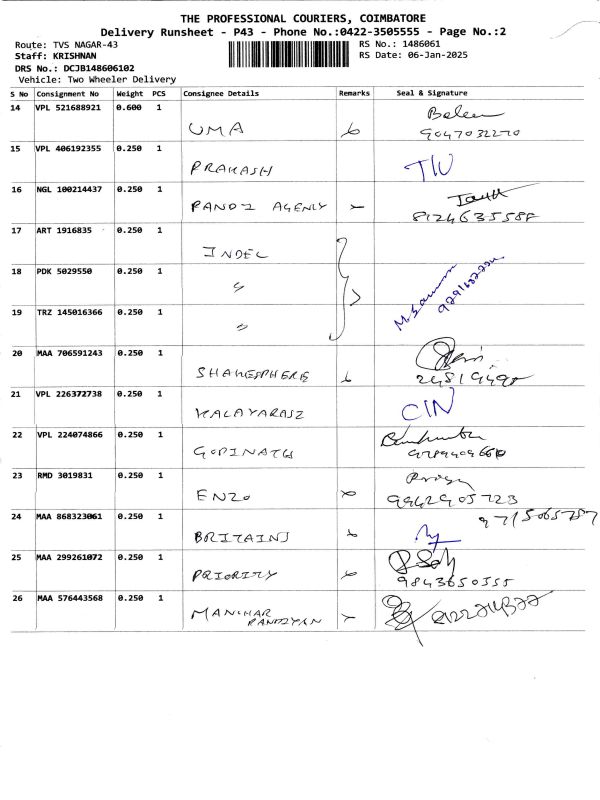 THE PROFESSIONAL COURIERS, COIMBATORE
Delivery Runsheet - P43 - Phone No.:0422-3505555 - Page No.:2
Route: TVS NAGAR-43
RS No.: 1486061
Staff: KRISHNAN
RS Date: 06-Jan-2025
DRS No.: DCJB148606102
Vehicle: Two Wheeler Delivery
S No Consignment No Weight PCS Consignee Details Remarks Seal & Signature
14 VPL 521688921 0.600 1
UMA 9047032270
15 VPL 406192355 0.250 1
PRAKASH
16 NGL 100214437 0.250 1
PANDI AGENLY 8124635588
17 ART 1916835 0.250 1
INDEL
18 PDK 5029550 0.250 1
"
19 TRZ 145016366 0.250 1
"
20 MAA 706591243 0.250 1
SHAKESPHERE
21 VPL 226372738 0.250 1
KALAYARASZ CIN
22 VPL 224074866 0.250 1
GOPINATH
23 RMD 3019831 0.250 1
ENZO 9942905723
24 MAA 868323061 0.250 1
BRITAINS
25 MAA 299261072 0.250 1
PRIORITY 9843650355
26 MAA 576443568 0.250 1
MANOHAR
PANDIYAN